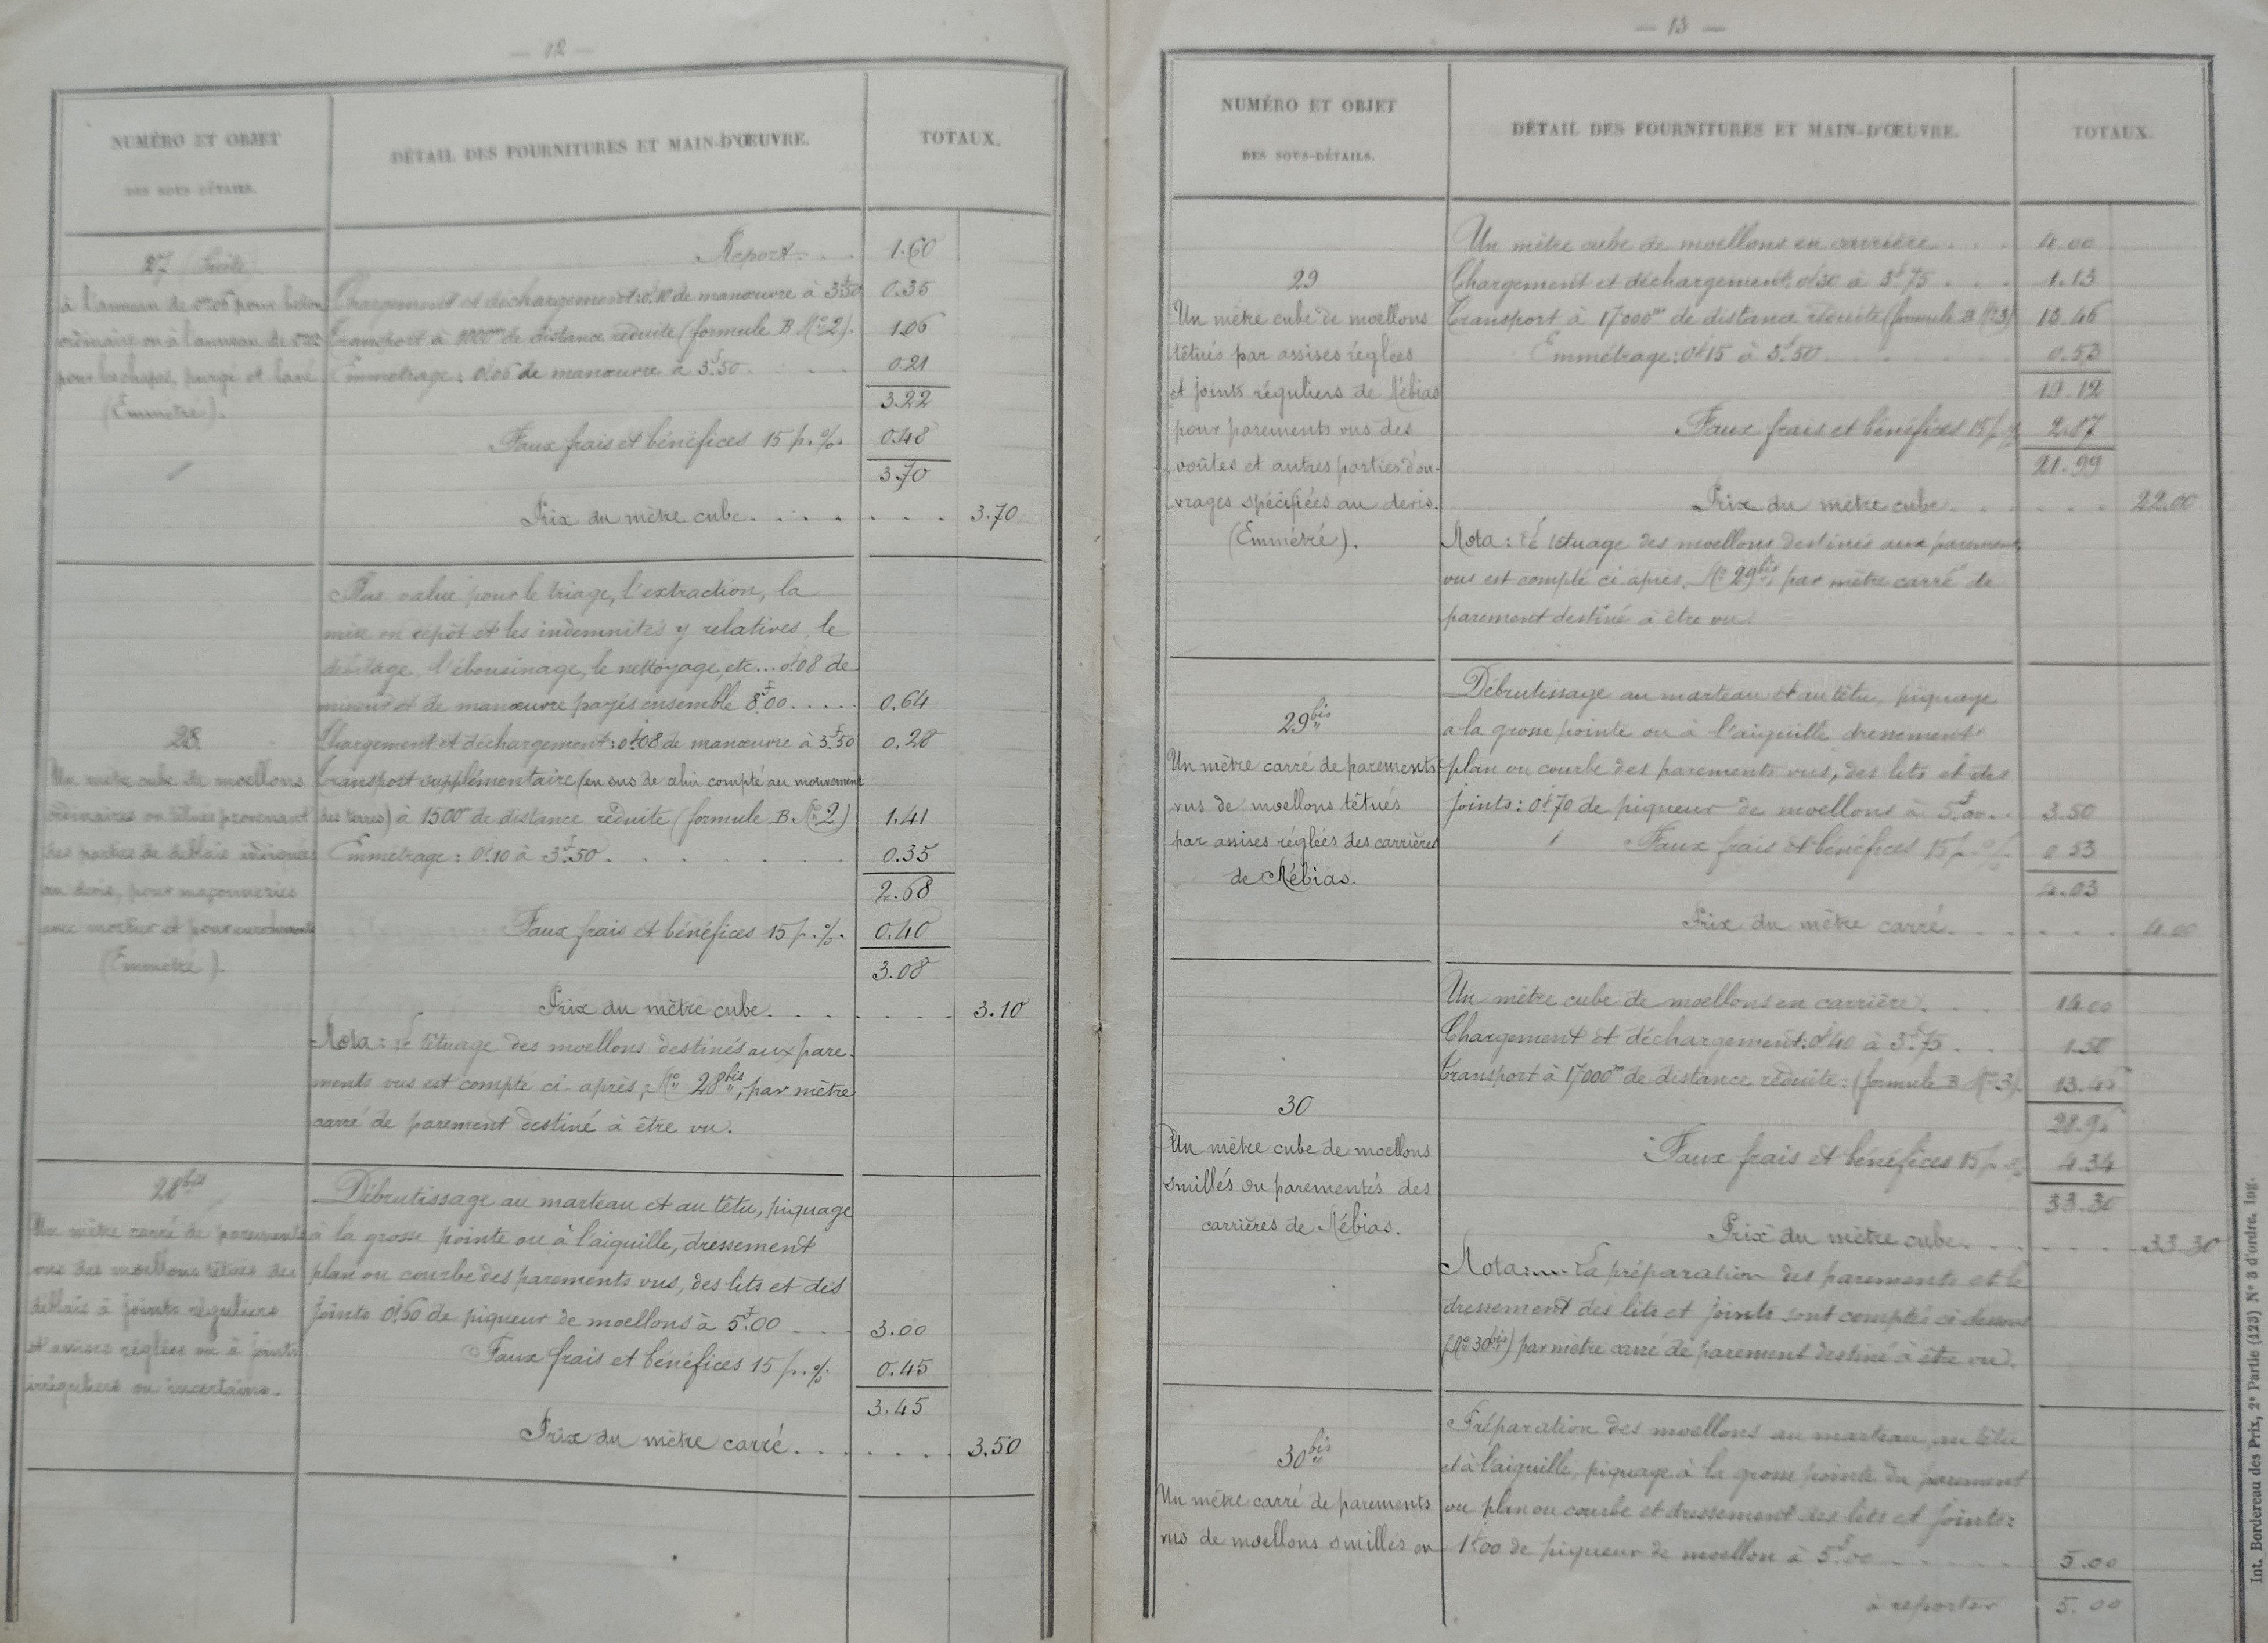 — 12 —
NUMÉRO ET OBJET
DES SOUS-DÉTAILS.
DÉTAIL DES FOURNITURES ET MAIN-D'ŒUVRE.
TOTAUX.
27 (Suite)
à l'anneau de 0m06 pour béton
ordinaire ou à l'anneau de
pour les chapes, purgé et lavé
(Emmétré).
Report. . . 1.60
Chargement et déchargement: 0j10 de manœuvre à 3f50 0.35
Transport à 1000m de distance réduite (formule B No 2). 1.06
Emmétrage: 0j06 de manœuvre à 3f.50 . . . . 0.21
3.22
Faux frais et bénéfices 15 p. %. 0.48
3.70
Prix du mètre cube. . . . . . . . 3.70
28
Un mètre cube de moellons
ordinaires ou têtués provenant
des parties de déblais indiquées
au devis, pour maçonneries
avec mortier et pour enrochements
(Emmétré).
Plus value pour le triage, l'extraction, la
mise en dépôt et les indemnités y relatives, le
débitage, l'ébousinage, le nettoyage, etc... 0j08 de
mineur et de manœuvre payés ensemble 8f.00. . . . . 0.64
Chargement et déchargement: 0j08 de manœuvre à 3f.50 0.28
Transport supplémentaire (en sus de celui compté au mouvement
des terres) à 1500m de distance réduite (formule B. No 2) 1.41
Emmétrage: 0j10 à 3f.50. . . . . . . 0.35
2.68
Faux frais et bénéfices 15 p. %. 0.40
3.08
Prix du mètre cube. . . . . . . . 3.10
Nota: Le têtuage des moellons destinés aux pare-
ments vus est compté ci-après, No 28bis, par mètre
carré de parement destiné à être vu.
28bis
Un mètre carré de parements
vus des moellons têtués des
déblais à joints réguliers
et assises réglées ou à joints
irréguliers ou incertains.
Débrutissage au marteau et au têtu, piquage
à la grosse pointe ou à l'aiguille, dressement
plan ou courbe des parements vus, des lits et des
joints 0j60 de piqueur de moellons à 5f.00 . . . 3.00
Faux frais et bénéfices 15 p. % 0.45
3.45
Prix du mètre carré. . . . . . . 3.50
— 13 —
NUMÉRO ET OBJET
DES SOUS-DÉTAILS.
DÉTAIL DES FOURNITURES ET MAIN-D'ŒUVRE.
TOTAUX.
29
Un mètre cube de moellons
têtués par assises réglées
et joints réguliers de Nébias
pour parements vus des
voûtes et autres parties d'ou-
vrages spécifiées au devis.
(Emmétré).
Un mètre cube de moellons en carrière . . . 4.00
Chargement et déchargement: 0j30 à 3f.75 . . . 1.13
Transport à 17000m de distance réduite (formule B No 3) 13.46
Emmétrage: 0j15 à 3f.50 . . . . 0.53
19.12
Faux frais et bénéfices 15 p. % 2.87
21.99
Prix du mètre cube. . . . . . 22.00
Nota: Le têtuage des moellons destinés aux parements
vus est compté ci-après, No 29bis, par mètre carré de
parement destiné à être vu
29bis
Un mètre carré de parements
vus de moellons têtués
par assises réglées des carrières
de Nébias.
Débrutissage au marteau et au têtu, piquage
à la grosse pointe ou à l'aiguille dressement
plan ou courbe des parements vus, des lits et des
joints: 0j70 de piqueur de moellons à 5f.00. . 3.50
Faux frais et bénéfices 15 p. % 0.53
4.03
Prix du mètre carré. . . . . . 4.00
30
Un mètre cube de moellons
smillés ou parementés des
carrières de Nébias.
Un mètre cube de moellons en carrière. . . . 14.00
Chargement et déchargement: 0j40 à 3f.75 . . . 1.50
Transport à 17000m de distance réduite: (formule B No 3). 13.46
28.96
Faux frais et bénéfices 15 p. % 4.34
33.30
Prix du mètre cube. . . . . . 33.30
Nota: La préparation des parements et le
dressement des lits et joints sont comptés ci-dessous
(No 30bis) par mètre carré de parement destiné à être vu.
30bis
Un mètre carré de parements
vus de moellons smillés ou
Préparation des moellons au marteau, au têtu
et à l'aiguille, piquage à la grosse pointe du parement
vu plan ou courbe et dressement des lits et joints:
1j.00 de piqueur de moellon à 5f.00 . . . . . 5.00
à reporter 5.00
Int. Bordereau des Prix, 2e Partie (123) No 3 d'ordre. Ing.